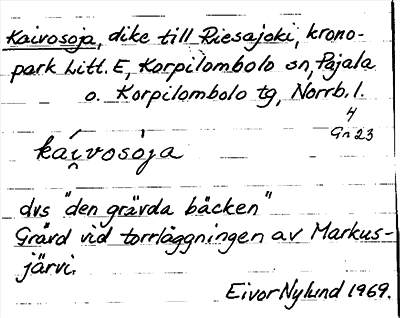 Kaivosoja, dike till Riesajoki, krono-
park Litt. E, Korpilombolo sn, Pajala
o. Korpilombolo tg, Norrb. l.
4
Gn 23
kái̯vosòja
dvs "den grävda bäcken"
Grävd vid torrläggningen av Markus-
järvi.
Eivor Nylund 1969.